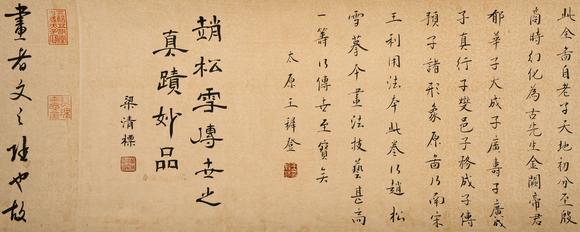 此全啚自老子天地初分至殷
商時幻化為古先生金闕帝君
郁華子大成子廣壽子廣成
子真行子爕邑子務成子傳
預子諸形象原啚乃南宋
王利用法本此卷乃趙松
雪摹本畫法技藝甚高
一籌乃傳世至寶矣
太原王穉登
趙松雪傳世之
真蹟妙品
梁清標
畫者文之極也故